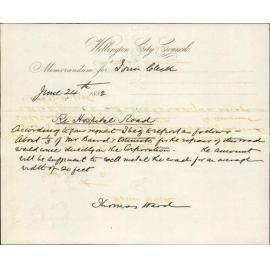 Wellington City Council
Memorandum for Town Clerk
June 24th 1882
Re Hospital Road
According to your request I beg to report as follows
About 1/3 of Mr Baird's Estimate for the repairs of this road
would come directly on the Corporation. The amount
will be sufficient to well metal the road for an average
width of 20 feet
Thomas Ward